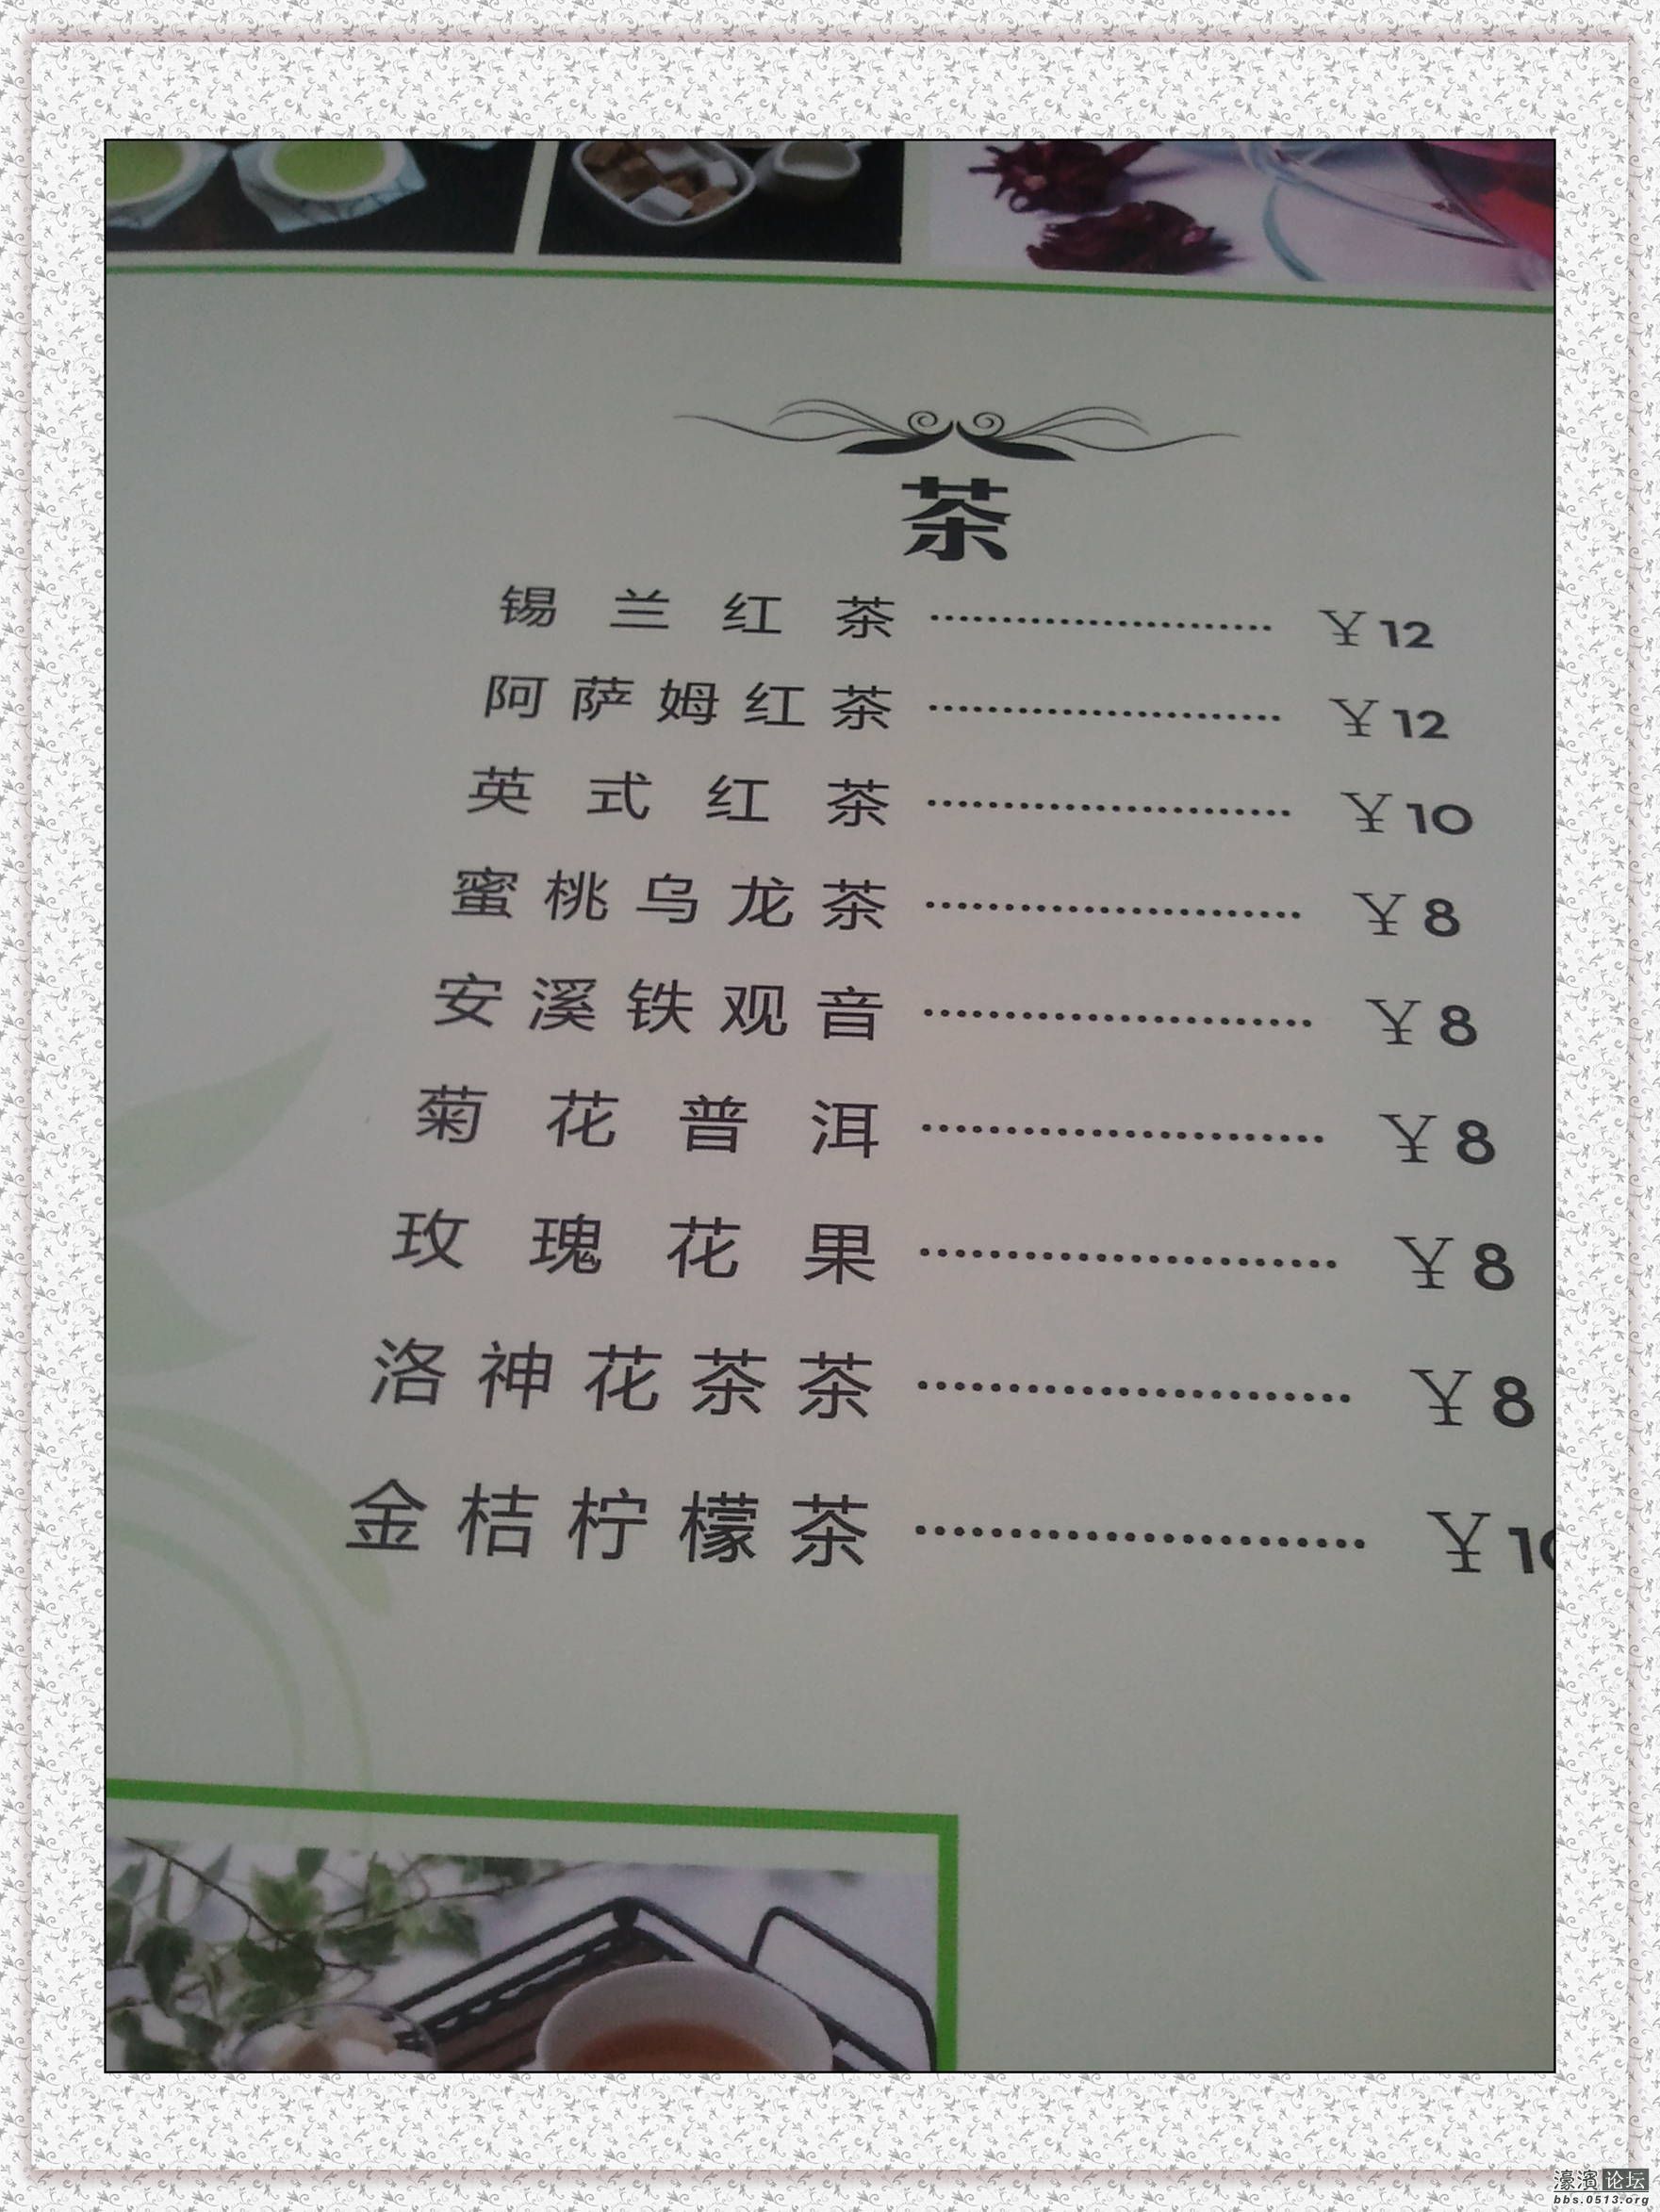 茶
锡兰红茶 ¥12
阿萨姆红茶 ¥12
英式红茶 ¥10
蜜桃乌龙茶 ¥8
安溪铁观音 ¥8
菊花普洱 ¥8
玫瑰花果 ¥8
洛神花茶茶 ¥8
金桔柠檬茶 ¥10
濠滨论坛
bbs.0513.org